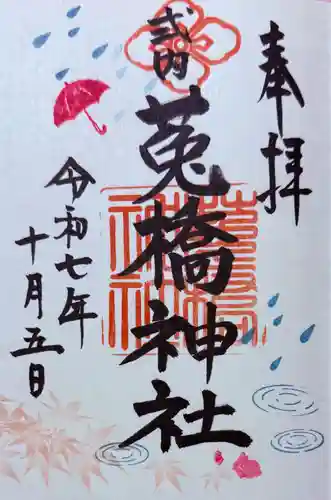 奉拝
式内
菟橋神社
令和七年
十月五日